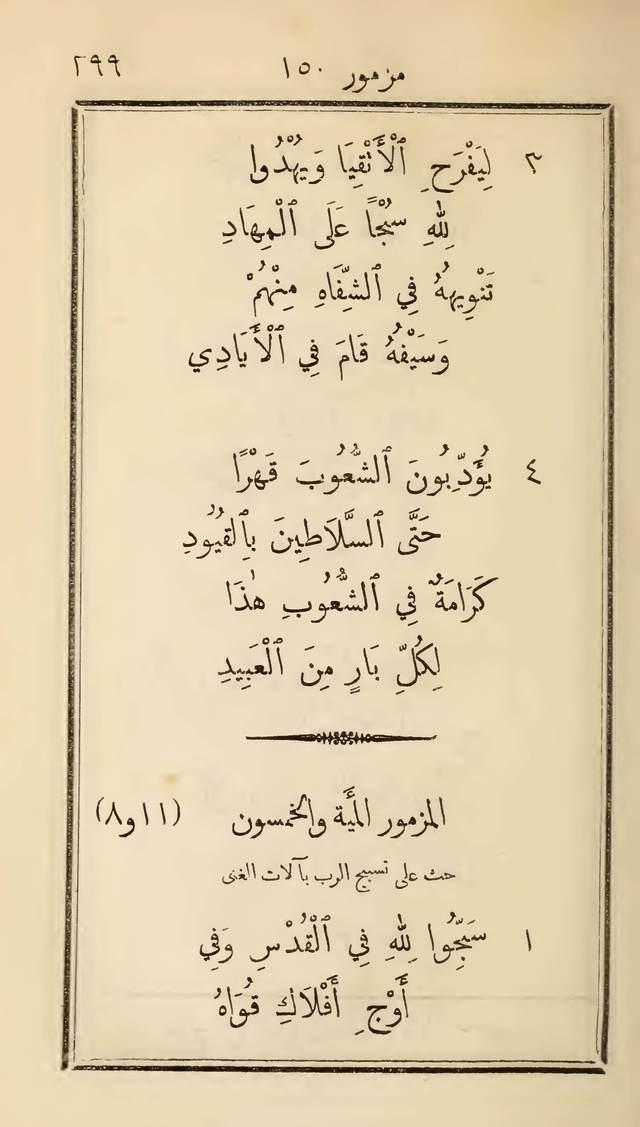 مزمور ١٥٠ ٢٩٩
٣ لِيَفْرَحِ ٱلْأَتْقِيَا وَيُهْدُوا
لِلّٰهِ سُبْحًا عَلَى ٱلْمِهَادِ
تَنْوِيهُهُ فِي ٱلشِّفَاهِ مِنْهُمْ
وَسَيْفُهُ قَامَ فِي ٱلْأَيَادِي
٤ يُؤَدِّبُونَ ٱلشُّعُوبَ قَهْرًا
حَتَّى ٱلسَّلَاطِينَ بِٱلقُيُودِ
كَرَامَةٌ فِي ٱلشُّعُوبِ هٰذَا
لِكُلِّ بَارٍ مِنَ ٱلْعَبِيدِ
المزمور المئَة والخمسون (١١ و٨)
حث على تسبيح الرب بآلات الغنى
١ سَبِّحُوا لِلّٰهِ فِي ٱلْقُدْسِ وَفِي
أَوْجِ أَفْلَاكِ قُوَاهُ